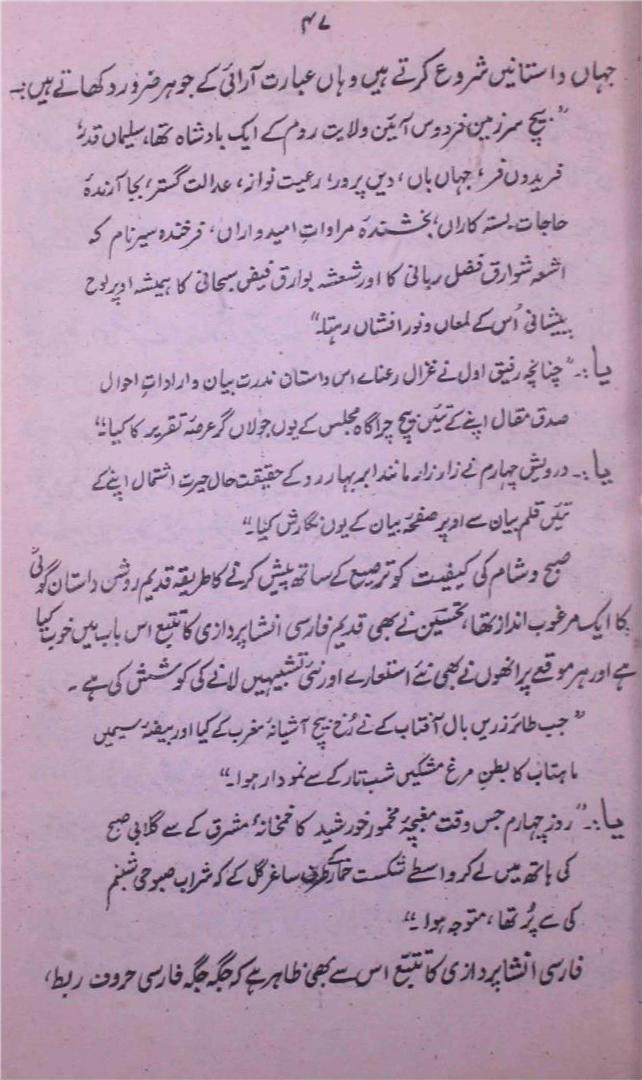 ۴۷
جہاں داستانیں شروع کرتے ہیں وہاں عبارت آرائی کے جوہر ضرور دکھاتے ہیں:۔
”بیچ سرزمین فردوس آئین ولایت روم کے ایک بادشاہ تھا، سلیماں قدر،
فریدوں فر، جہاں باں، دیں پرور، رعیت نواز، عدالت گستر، بجا آرندۂ
حاجات بستہ کاراں، بخشندۂ مرادات امیدواراں، فرخندہ سیر نام کہ
اشعہ شوارق فضل ربانی کا اور شعشہ بوارق فیض سبحانی کا ہمیشہ اوپر لوح
پیشانی اُس کے لمعاں و نور افشاں رہتا۔“
یا:۔ ”چنانچہ رفیق اول نے غزال رعنائے اس داستان ندرت بیان و ارادات احوال
صدق مقال اپنے کے تئیں بیچ چراگاہ مجلس کے یوں جولاں گر عرصۂ تقریر کا کیا:“
یا:۔ درویش چہارم نے زار زار مانند ابر بہار رو کے حقیقت حال حیرت اشتمال اپنے کے
تئیں قلم بیان سے اوپر صفحۂ بیان کے یوں نگارش کیا۔“
صبح و شام کی کیفیت کو ترصیع کے ساتھ پیش کرنے کا طریقہ قدیم روشِ داستان گوئی
کا ایک مرغوب انداز تھا، تحسین نے بھی قدیم فارسی انشا پردازی کا تتبع اس باب میں خوب کیا
ہے اور ہر موقعے پر انھوں نے بھی نئے استعارے اور نئی تشبیہیں لانے کی کوشش کی ہے۔
”جب طائر زریں بال آفتاب کے نے رُخ بیچ آشیانۂ مغرب کے کیا اور بیضۂ سیمیں
ماہتاب کا بطن مرغ مشکیں شب تار کے سے نمودار ہوا۔“
یا:۔ ”روز چہارم جس وقت مغبچۂ مخمور خورشید کا خمخانۂ مشرق کے سے گلابی صبح
کی ہاتھ میں لے کر واسطے شکست خمار ساغر گل کے کہ شراب صبوحی شبنم
کی سے پُر تھا، متوجہ ہوا۔“
فارسی انشا پردازی کا تتبّع اس سے بھی ظاہر ہے کہ جگہ جگہ فارسی حروف ربط،